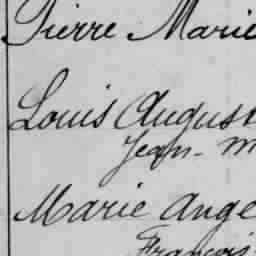 Pierre Marie
Louis August
Jean-M
Marie Ange
François